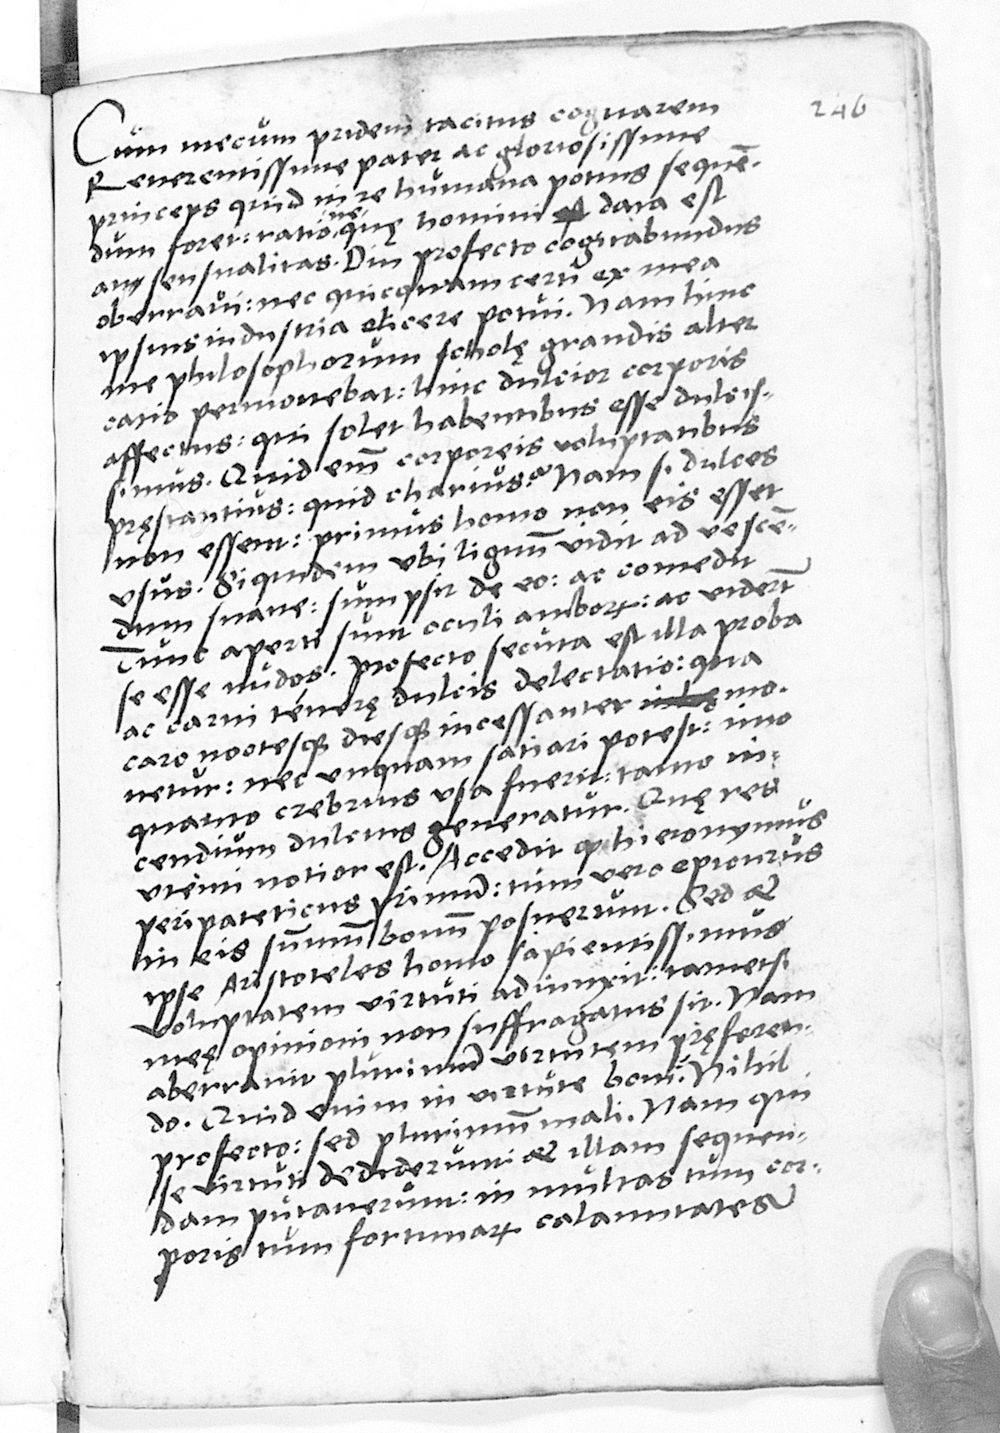 246
Cum mecum pridem tacitus cogitarem
Reverentissime pater ac gloriosissime
princeps quid in re humana potius sequē-
dum foret: ratio ne quę homini data est
an sensualitas. Diu profecto cogitabundus
oberravi: nec quicquam certi ex mea
ipsius industria elicere potui. Nam hinc
me philosophorum scholę grandis alter
catio permovebat: hinc dulcior corporis
affectus: qui solet habentibus esse dulcis-
simus. Quid em̄ corporeis voluptatibus
pręstantius: quid charius? Nam si dulces
non essent: primus homo non eis esset
usus. Siquidem ubi lignū vidit ad vescē-
dum suave: sumpsit de eo: ac comedit
Tunc aperti sunt oculi amborꝝ: ac viderūt
se esse nudos. Profecto secuta est illa proba
ac carni tenerę dulcis delectatio: qua
caro noctesqꝫ diesqꝫ incessanter mo-
netur: nec unquam satiari potest: imo
quanto crebrius usa fuerit: tanto in-
cendium dulcius generatur. Quę res
utemi notior est. Accedit ꝙ hieronymus
peripateticus primū: tum vero epicurus
in eis summū bonū posuerunt. Sed et
ipse Aristoteles homo sapientissimus
voluptatem virtuti adiunxit: tametsi
meę opinioni non suffragatus sit. Nam
aberravit plurimū virtutem pręferen-
do. Quid enim in virtute boni? Nihil
profecto: sed plurimū mali. Nam qui
se virtuti dediderunt et illam sequen-
dam putaverunt: in multas tum cor-
poris tum fortunarꝝ calamitates